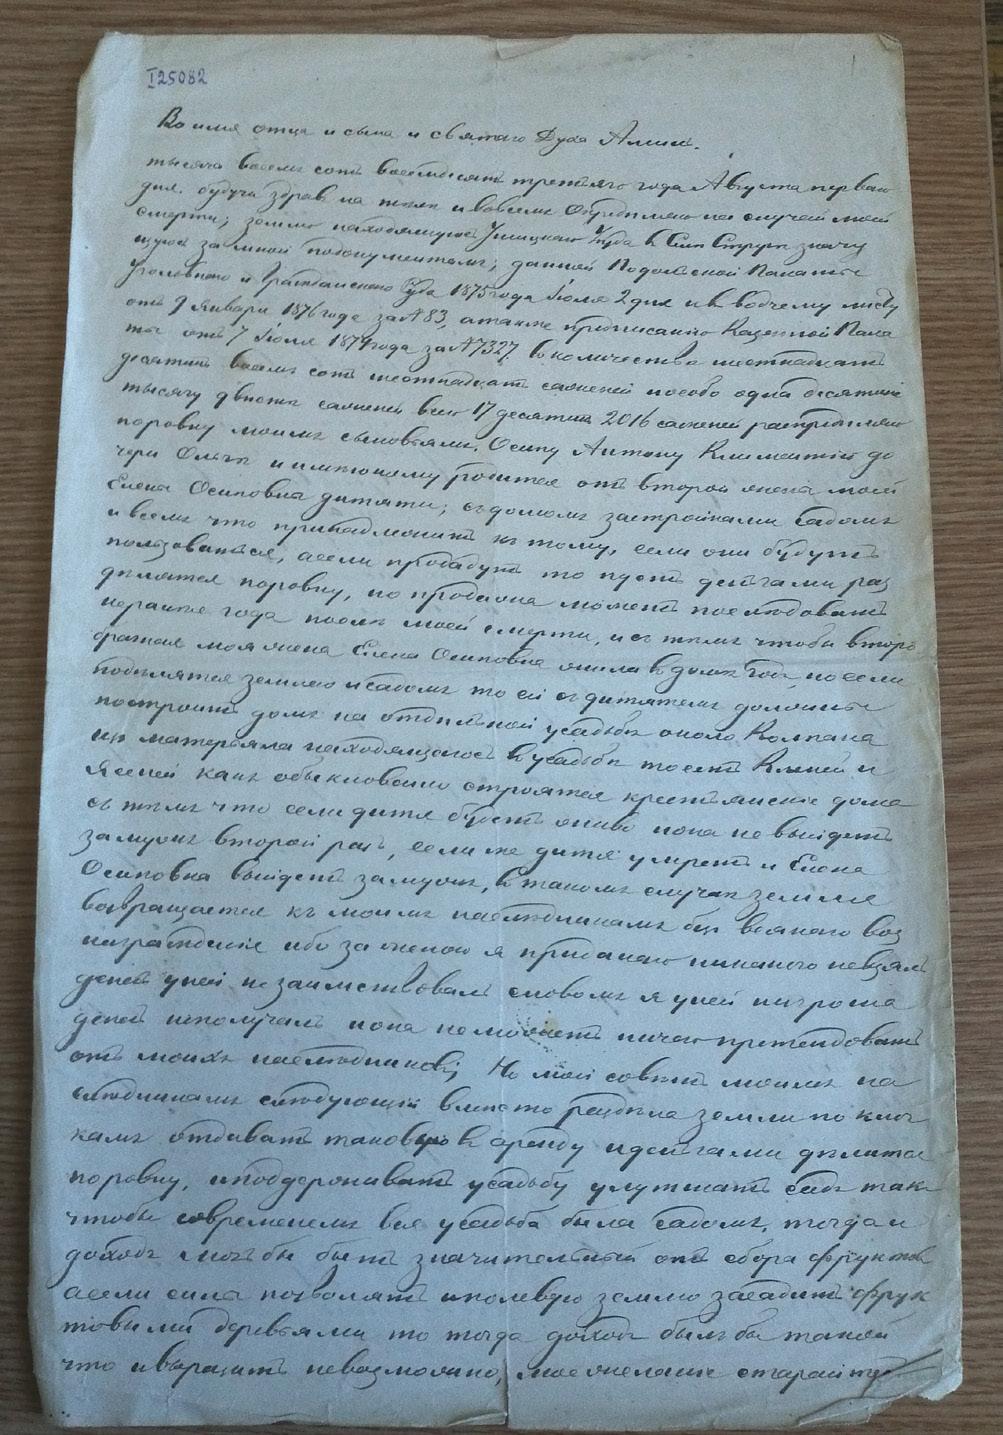 I25082
Во имя отца и сына и святаго Духа Аминь.
тысяча восемь сотъ восемдесятъ третьяго года Августа перваго
дня. будучи здравъ на тѣлѣ и вовсемъ опредѣляю на случай моей
смерти; землю находящуюся Ушицкаго Уѣзда в Селѣ Струги значу
щуюся за мной подокументамъ; данной Подольской Палаты
Уголовнаго и Гражданскаго Суда 1875 года Іюля 2 дня и в водчему листу
отъ 9 Января 1876 года за № 83, а также предписанію Казенной Пала
ты отъ 7 Іюля 1879 года за № 7327, в количествѣ шестнадцать
десятинъ восемь сотъ шестнадцать саженей и особо одна десятина
тысячу двѣсти саженей всего 17 десятинъ 2016 саженей распредѣляю
поровну моимъ сыновьямъ, Осипу Антону Климентію до
чери Ольгѣ и имѣющему родится отъ второй жены моей
Елена Осиповна дитяти; съ домомъ застройками садомъ
и всемъ что принадлежитъ къ тому, если они будутъ
ползоваться, а если продадутъ то пусть деньгами раз
дѣлятся поровну, но продажа можетъ послѣдовать
неранѣе года послѣ моей смерти, и съ тѣмъ чтобы второ
брачная моя жена Елена Осиповна жила в домѣ годъ, но если
подѣлятся землею и садомъ то ей съ дитятемъ должны
построить домъ на отдѣльной усадьбѣ около Колпана
изъ матерьяла находящагося в усадьбѣ тоесть Кленей и
Ясеней какъ обыкновенно строятся крестьянскіе дома
съ тѣмъ что если дитя будетъ живо пока не выйдетъ
замужъ второй разъ, если же дитя умретъ и Елена
Осиповна выйдетъ замужъ, в такомъ случаѣ земля
возвращается къ моимъ наслѣдникамъ безъ всякаго воз
награжденія ибо за женою я приданаго никакого невзялъ
денегъ уней не заимствовалъ словомъ я уней ни гроша
денегъ неполучалъ пока неможетъ ничего претендовать
отъ моихъ наслѣдниковъ; Но мой совѣтъ моимъ на
слѣдникамъ слѣдующій вмѣсто раздѣла земли по клоч
камъ отдавать таковую в аренду и деньгами дѣлится
поровну, и поддерживать усадьбу улутшать садъ такъ
чтобы современемъ вся усадьба была садомъ, тогда и
доходъ могъ бы быть значительный отъ сбора фруктовъ
а если сила позволятъ и полевую землю засадить фрук
товыми деревьями то тогда доходъ былъ бы такой
что и выразить невозможно, мое желаніе старайтесь